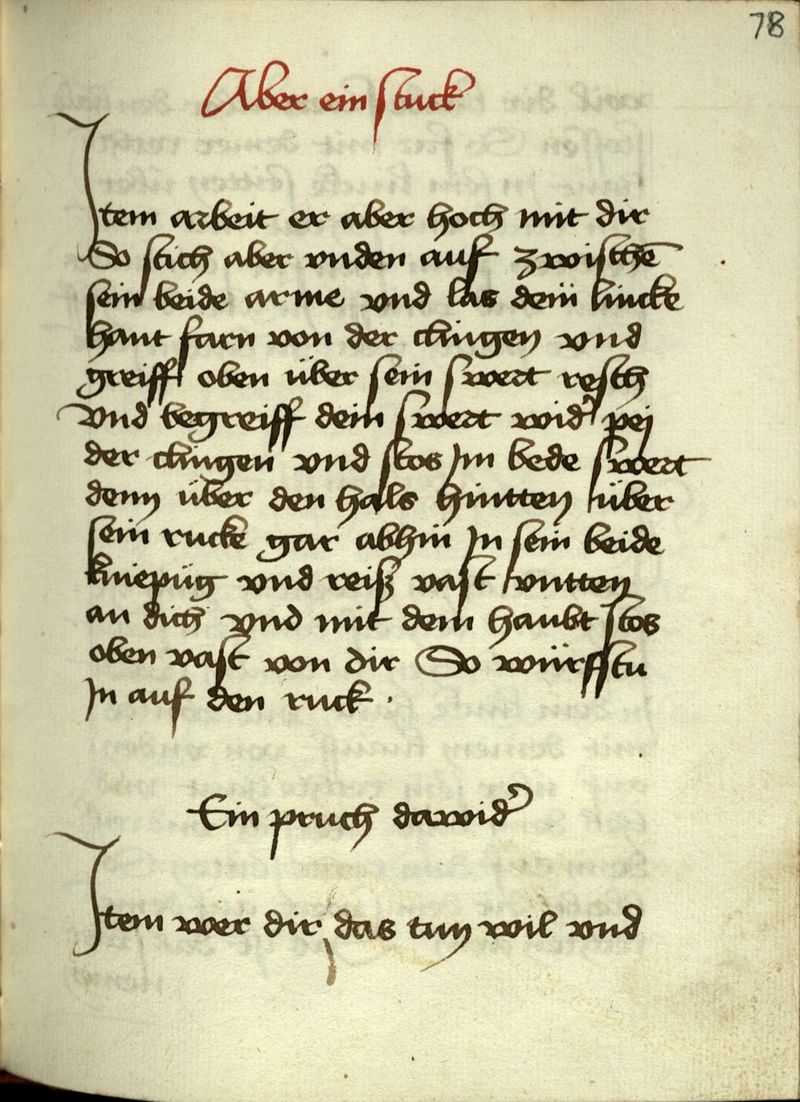 78
Aber ein stuck
Item arbeit er aber hoch mit dir
So stich aber vnden auf zwischē
sein beide arme vnd las dein lincke
hant farn von der clingen vnd
greiff oben über sein swert resch
vnd begreiff dein swert wid̉ pej
der clingen vnd stos Im bede swert
denn über den hals hintten über
sein rucke gar abhin In sein beide
kniepüg vnd reiß vast vntten
an dich vnd mit dem haubt stos
oben vast von dir So würffstu
In auf den ruck ·
Ein pruch dawid̉
Item wer dir das tun wil vnd